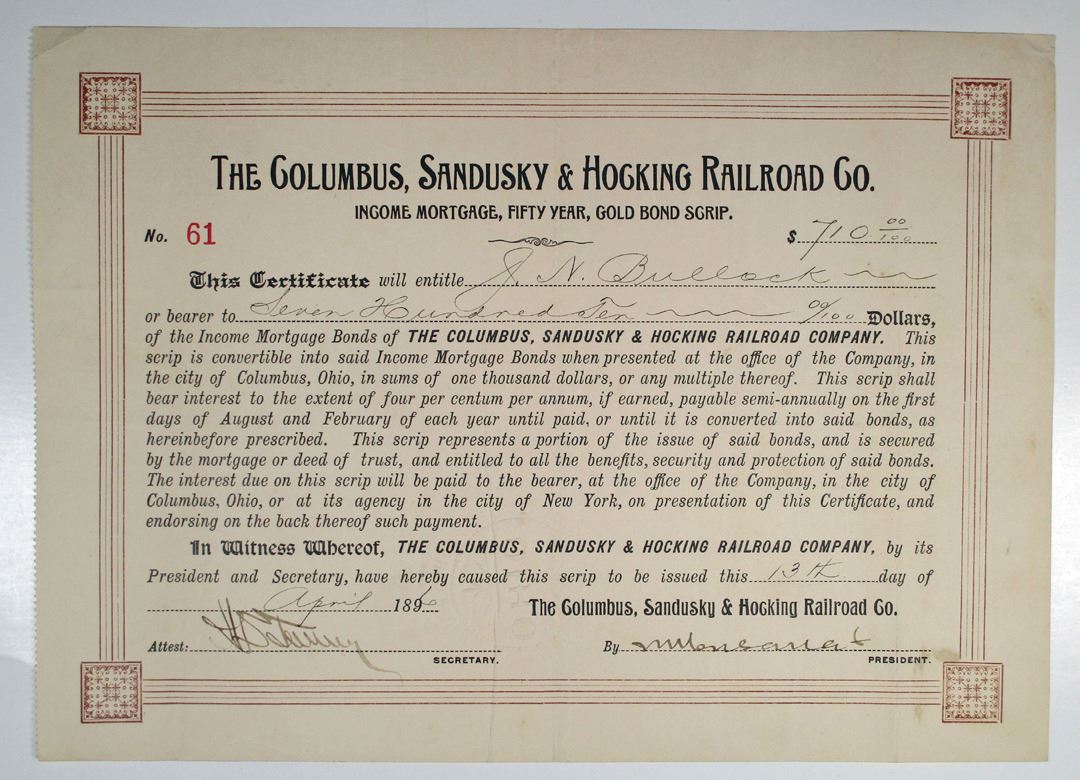 THE COLUMBUS, SANDUSKY & HOCKING RAILROAD CO.
INCOME MORTGAGE, FIFTY YEAR, GOLD BOND SCRIP.
No. 61 $ 710 00/100
This Certificate will entitle J. N. Bullock
or bearer to Seven Hundred Ten 00/100 Dollars,
of the Income Mortgage Bonds of THE COLUMBUS, SANDUSKY & HOCKING RAILROAD COMPANY. This
scrip is convertible into said Income Mortgage Bonds when presented at the office of the Company, in
the city of Columbus, Ohio, in sums of one thousand dollars, or any multiple thereof. This scrip shall
bear interest to the extent of four per centum per annum, if earned, payable semi-annually on the first
days of August and February of each year until paid, or until it is converted into said bonds, as
hereinbefore prescribed. This scrip represents a portion of the issue of said bonds, and is secured
by the mortgage or deed of trust, and entitled to all the benefits, security and protection of said bonds.
The interest due on this scrip will be paid to the bearer, at the office of the Company, in the city of
Columbus, Ohio, or at its agency in the city of New York, on presentation of this Certificate, and
endorsing on the back thereof such payment.
In Witness Whereof, THE COLUMBUS, SANDUSKY & HOCKING RAILROAD COMPANY, by its
President and Secretary, have hereby caused this scrip to be issued this 13th day of
April 1896 The Columbus, Sandusky & Hocking Railroad Co.
Attest: By
SECRETARY. PRESIDENT.